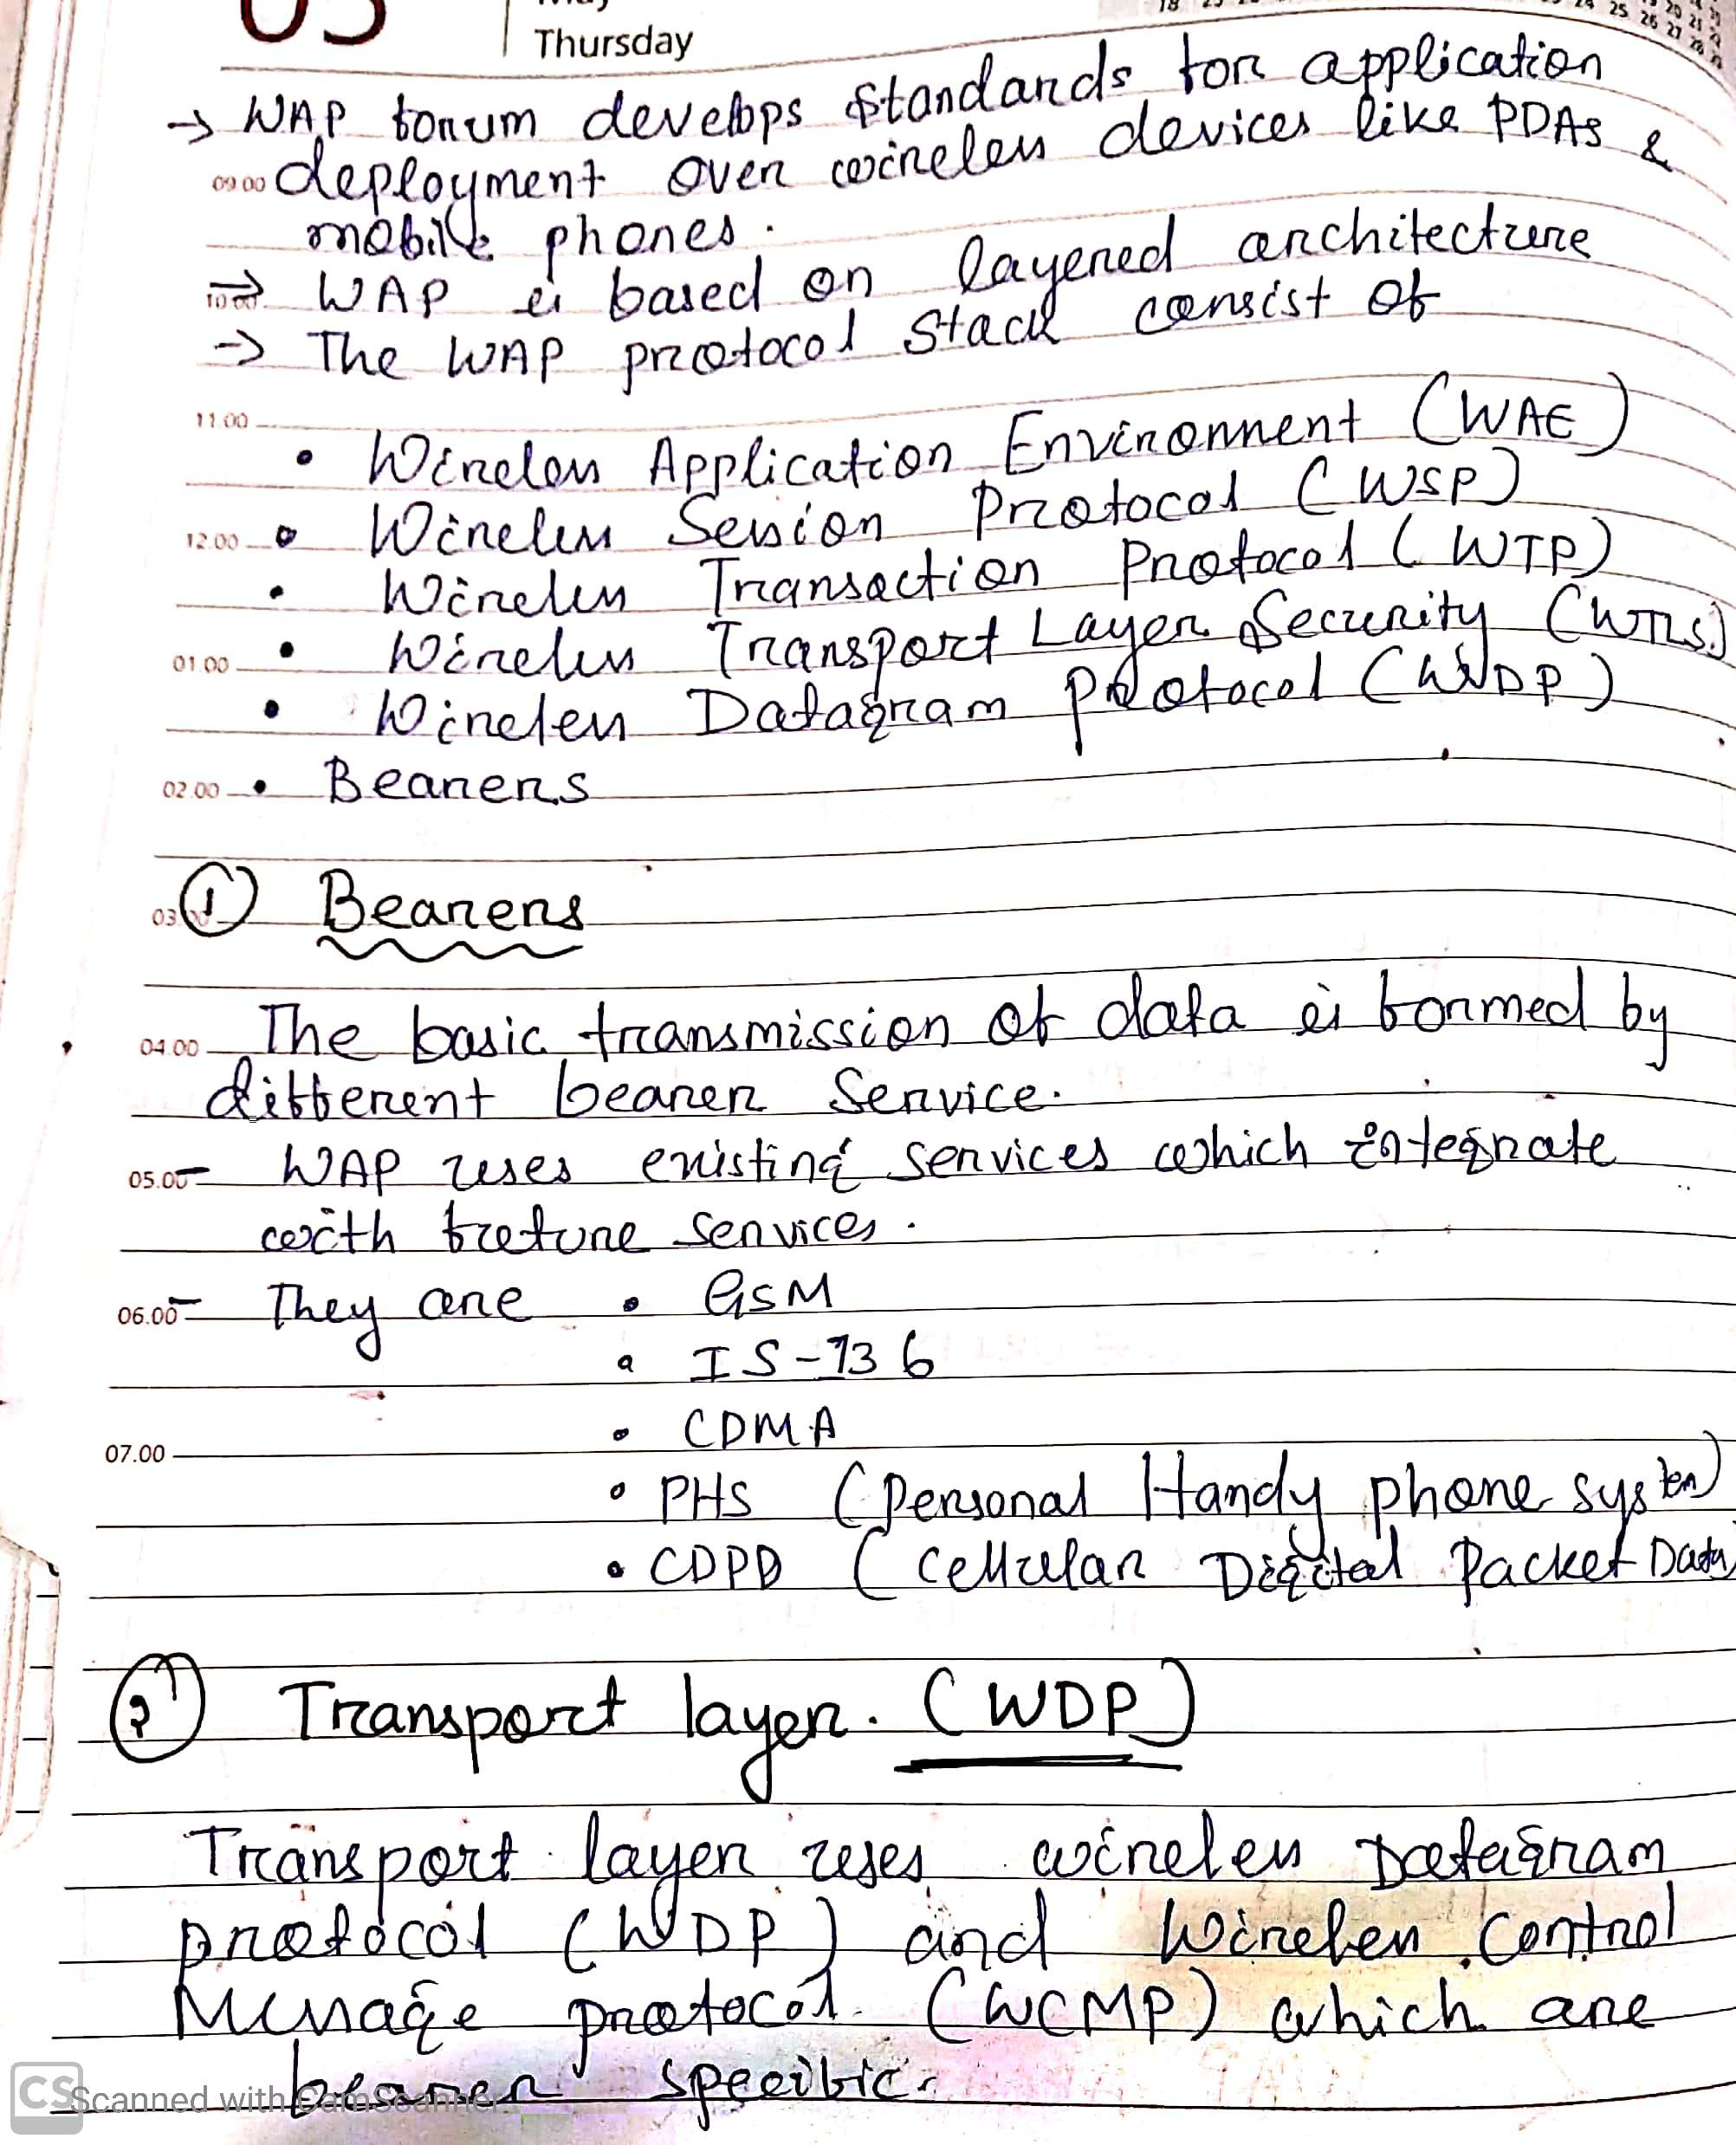 Thursday
→ WAP forum develops standards for application
09.00 deployment over wireless devices like PDAs &
mobile phones.
10.00 → WAP is based on layered architecture
→ The WAP protocol stack consist of
11.00
• Wireless Application Environment (WAE)
12.00 • Wireless Session Protocol (WSP)
• Wireless Transaction Protocol (WTP)
01.00 • Wireless Transport Layer Security (WTLS)
• Wireless Datagram Protocol (WDP)
02.00 • Bearers
03.00 ① Bearers
04.00 The basic transmission of data is formed by
different bearer service.
05.00 - WAP uses existing services which integrate
with future services.
06.00 - They are • GSM
• IS-136
• CDMA
07.00
• PHS (Personal Handy phone system)
• CDPD (Cellular Digital Packet Data
② Transport layer. (WDP)
Transport layer uses wireless Datagram
protocol (WDP) and Wireless Control
Message protocol (WCMP) which are
bearer specific.
CS Scanned with CamScanner